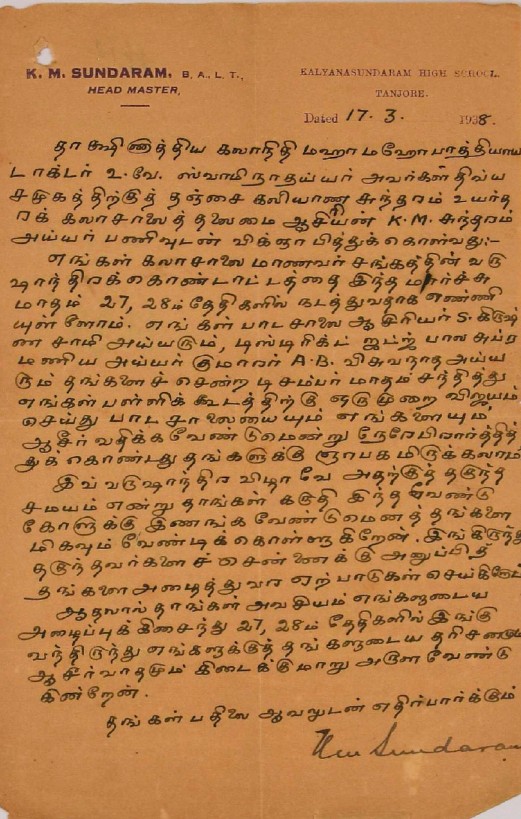 K. M. SUNDARAM, B. A., L. T.,
HEAD MASTER,
KALYANASUNDARAM HIGH SCHOOL
TANJORE.
Dated 17. 3. 1938.
தாக்ஷிணாத்திய கலாநிதி மஹா மஹோபாத்தியாய
டாக்டர் உ. வே. ஸ்வாமிநாதய்யர் அவர்கள் திவ்ய
சமுகத்திற்குத் தஞ்சை கலியாண சுந்தரம் உயர்த
ரக் கலாசாலைத் தலைமை ஆசிரியன் K.M. சுந்தரம்
அய்யர் பணிவுடன் விக்ஞாபித்துக்கொள்வது:-
எங்கள் கலாசாலை மாணவர் சங்கத்தின் வரு
ஷாந்திரக்கொண்டாட்டத்தை இந்த மார்ச்சு
மாதம் 27, 28ம் தேதிகளில் நடத்துவதாக எண்ணி
யுள்ளோம். எங்கள் பாடசாலை ஆசிரியர் S. கிருஷ்
ணசாமி அய்யரும், டிஸ்டிரிக்ட் ஜட்ஜ் பால சுப்ர
மணிய அய்யர் குமாரர் A.B. விசுவநாத அய்ய
ரும் தங்களைச் சென்ற டிசம்பர் மாதம் சந்தித்து
எங்கள் பள்ளிக்கூடத்திற்கு ஒருமுறை விஜயம்
செய்து பாடசாலையையும் எங்களையும்
ஆசீர்வதிக்கவேண்டுமென்று நேரே பிரார்த்தித்
துக் கொண்டது தங்களுக்கு ஞாபகமிருக்கலாம்
இவ்வருஷாந்திர விழாவே அதற்குத் தகுந்த
சமயம் என்று தாங்கள் கருதி இந்த வேண்டு
கோளுக்கு இணங்கவேண்டுமெனத் தங்களை
மிகவும் வேண்டிக்கொள்ளுகிறேன். இங்கிருந்து
தகுந்தவர்களைச் சென்னைக்கு அனுப்பித்
தங்களை அழைத்துவர ஏற்பாடுகள் செய்கிறேன்
ஆதலால் தாங்கள் அவசியம் எங்களுடைய
அழைப்புக்கிசைந்து 27, 28ம் தேதிகளில் இங்கு
வந்திருந்து எங்களுக்குத் தங்களுடைய தரிசனமும்
ஆசீர்வாதமும் கிடைக்குமாறு அருள வேண்டு
கின்றேன்.
தங்கள் பதிலை ஆவலுடன் எதிர்பார்க்கும்
K M Sundaram